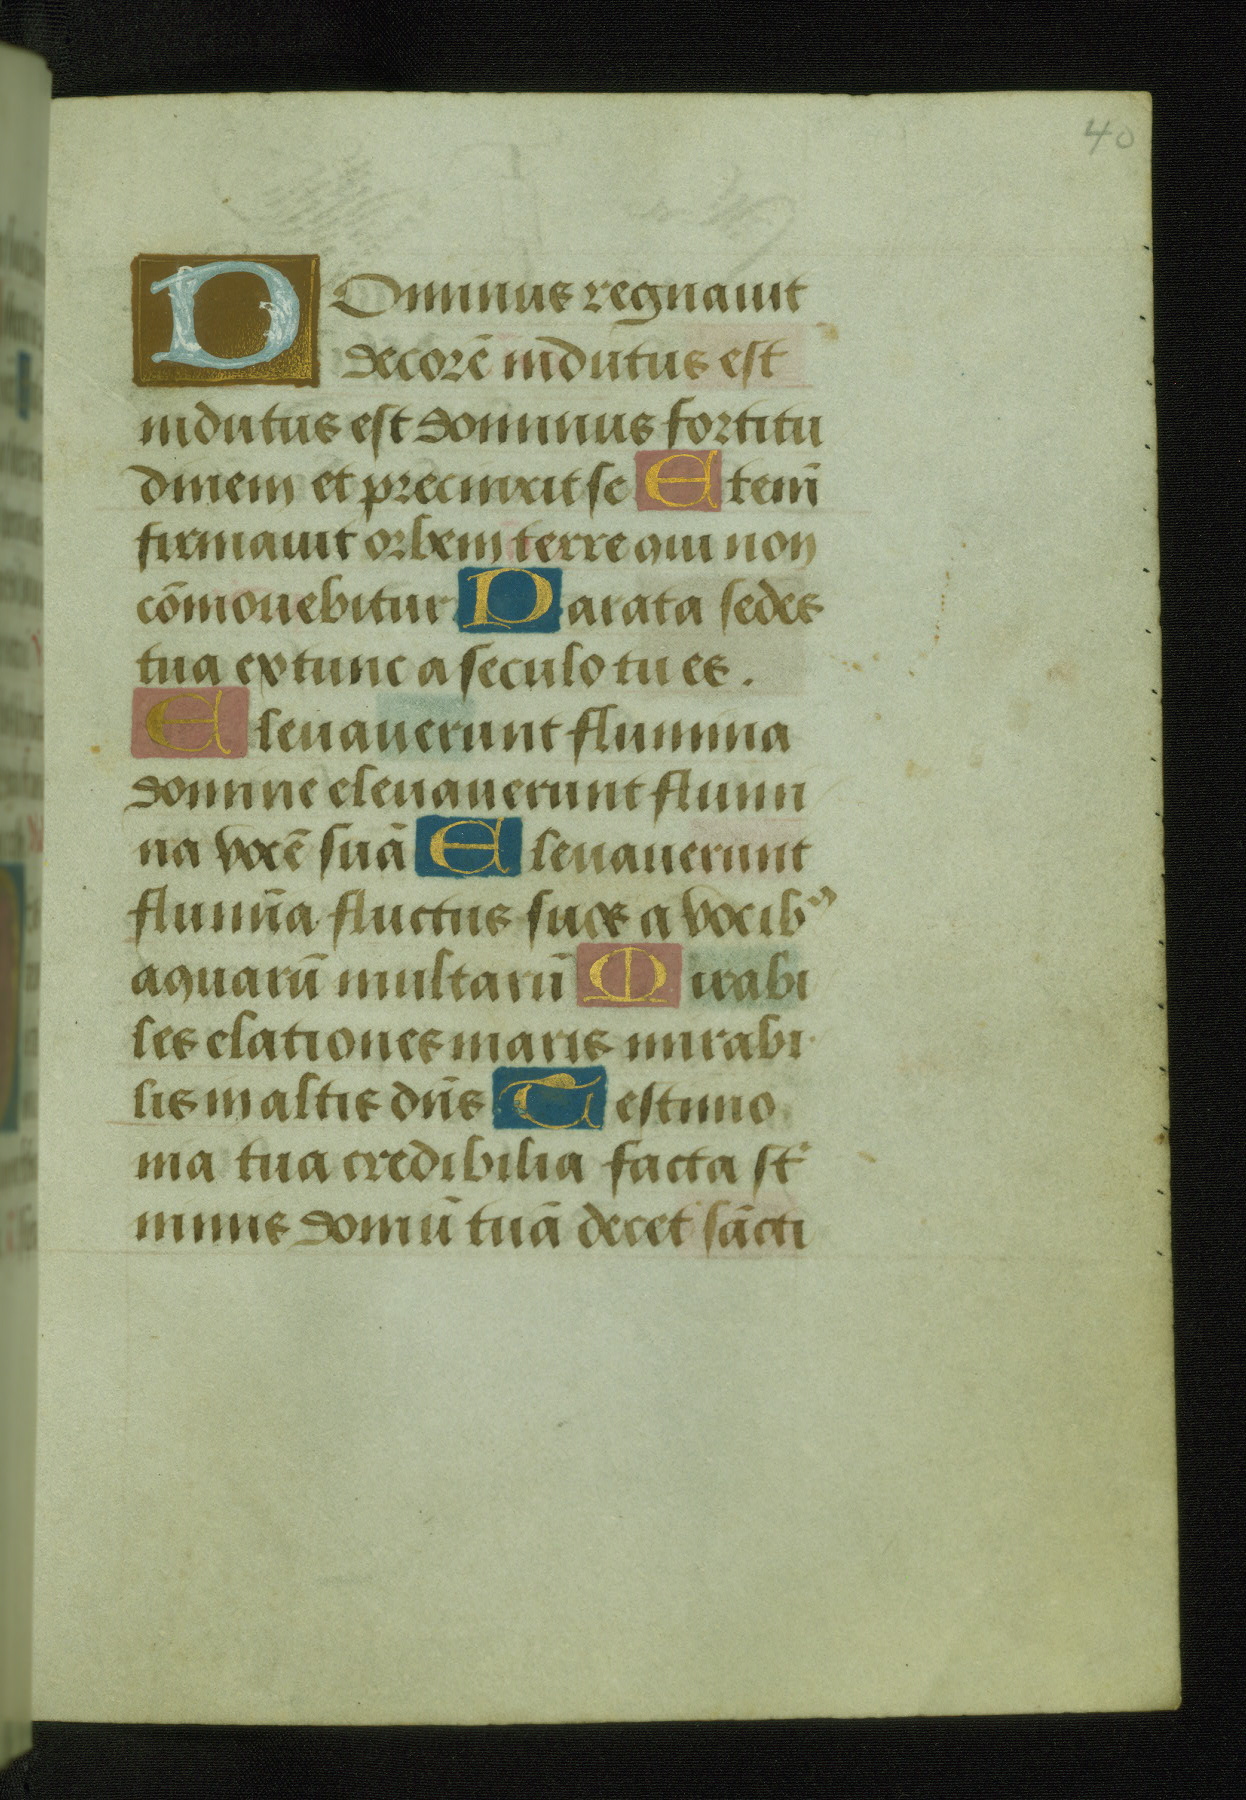 40
DOminus regnauit
decorē indutus est
indutus est dominus fortitu
dinem et precinxit se Etenī
firmauit orbem terre qui non
cōmouebitur Parata sedes
tua ex tunc a seculo tu es.
Eleuauerunt flumina
domine eleuauerunt flumi
na vocē suā Eleuauerunt
flumīa fluctus suos a vocib⁹
aquarū multarū Mirabi
les elationes maris mirabi
lis in altis dn̄s Testimo
nia tua credibilia facta st̄
nimis domū tuā decet sācti